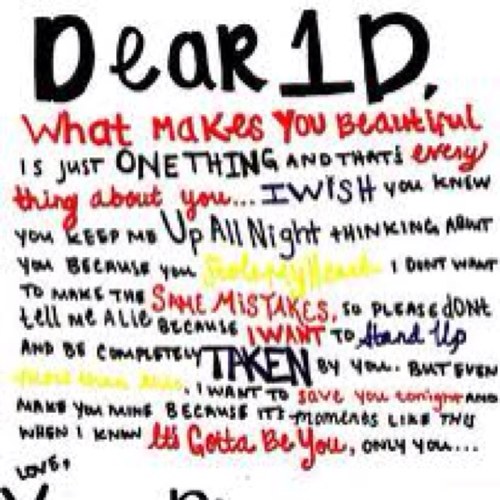 Dear 1D,
What Makes You Beautiful
is just ONE THING AND THAT'S every
thing about you... I WISH you KNEW
you KEEP ME Up All Night THINKING ABOUT
you BECAUSE you Stole my Heart I DONT WANT
TO MAKE THE SAME MISTAKES, SO PLEASE dONt
tell me A lie BECAUSE I WANT TO Stand Up
AND BE COMPLETELY TAKEN BY you. BUT EVEN
more than this, I WANT TO save you tonight AND
MAKE you MINE BECAUSE IT'S moments LIKE THIS
WHEN I KNOW It's Gotta Be You, ONLY you...
LOVE,